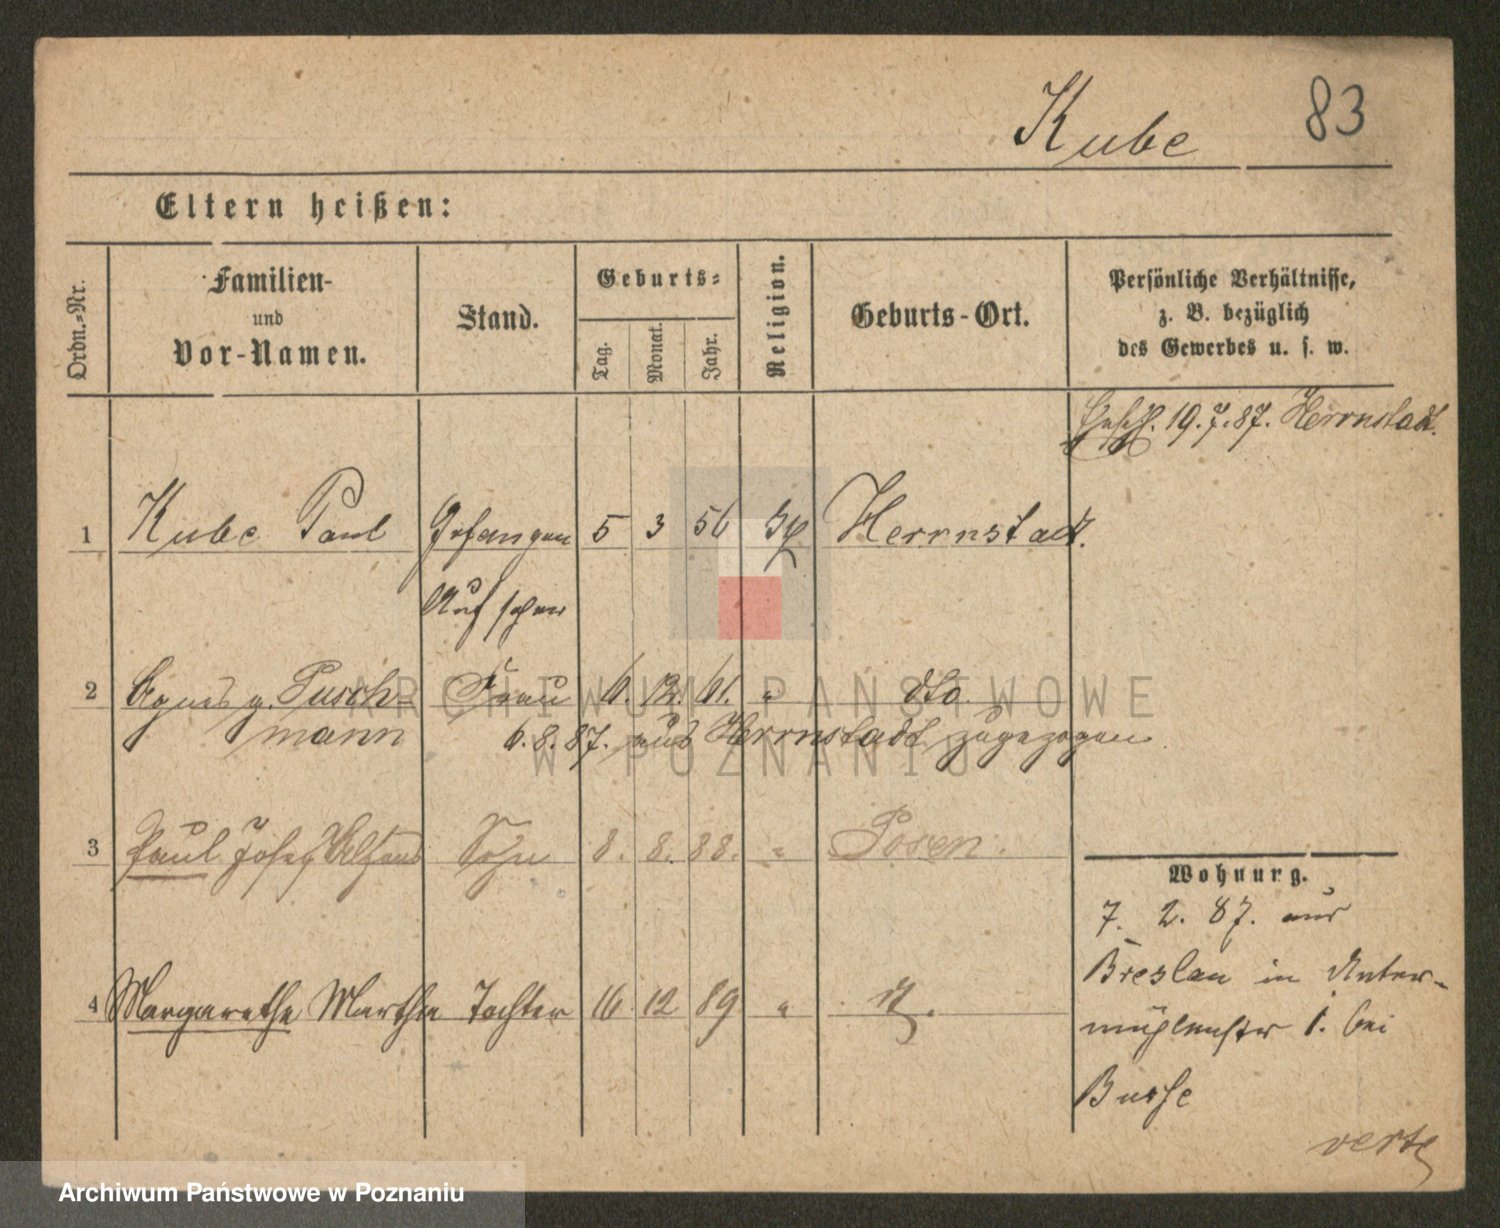 Kube 83
Eltern heißen:
Ordn.-Nr.
Familien-
und
Vor-Namen.
Stand.
Geburts-
Tag.
Monat.
Jahr.
Religion.
Geburts-Ort.
Persönliche Verhältnisse,
z. B. bezüglich
des Gewerbes u. s. w.
19.7.87. Herrnstadt.
1 Kube Paul Gefangen 5 3 56 Herrnstadt.
Aufseher
2 Agnes g. Pusch- Frau 6. 12. 61. " dto.
mann 6.8.87. aus Herrnstadt zugezogen
3 Paul Josef Sohn 8. 8. 88. " Posen.
4 Margarethe Martha Tochter 16 12 89 "
Wohnung.
7. 2. 87. aus
Breslau in Unter-
mühlenstr 1. bei
Busse
verte
ARCHIWUM PAŃSTWOWE
W POZNANIU
Archiwum Państwowe w Poznaniu